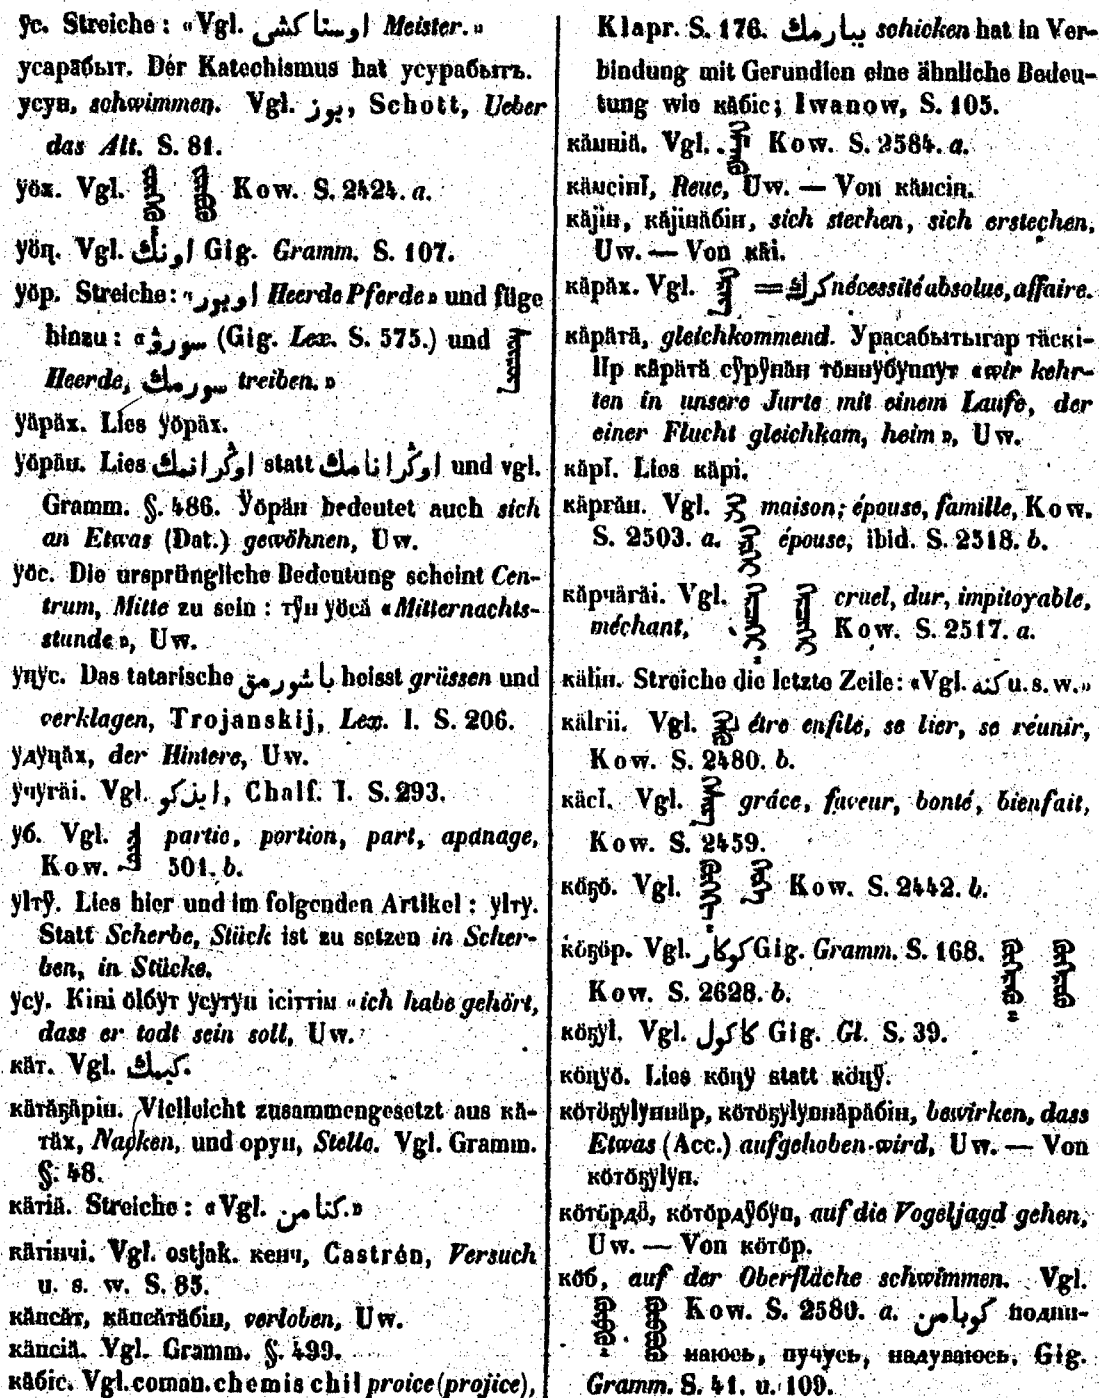 ӱс. Streiche: «Vgl. اوستا كشى Meister.»
усарабыт. Der Katechismus hat усурабытъ.
усун, schwimmen. Vgl. يوز, Schott, Ueber
das Alt. S. 81.
ӱöх. Vgl. Kow. S. 2424. a.
ӱöц. Vgl. اونك Gig. Gramm. S. 107.
ӱöр. Streiche: «اويور Heerde Pferde» und füge
hinzu: «سورۇ (Gig. Lex. S. 575.) und
Heerde, سورمك treiben.»
ӱäрäх. Lies ӱöрäх.
ӱöрäн. Lies اوكرانمك statt اوكرانامك und vgl.
Gramm. §. 486. Ӱöрäн bedeutet auch sich
an Etwas (Dat.) gewöhnen, Uw.
ӱöс. Die ursprüngliche Bedeutung scheint Cen-
trum, Mitte zu sein: тӱн ӱöсä «Mitternachts-
stunde», Uw.
ӱцӱс. Das tatarische باشورمق heisst grüssen und
verklagen, Trojanskij, Lex. I. S. 206.
ӱдӱцäх, der Hintere, Uw.
ӱчӱгäi. Vgl. ايذكو, Chalf. I. S. 293.
ӱб. Vgl. partie, portion, part, apanage,
Kow. 501. b.
ӱlтӱ. Lies hier und im folgenden Artikel: ӱlтӱ.
Statt Scherbe, Stück ist zu setzen in Scher-
ben, in Stücke.
ӱсӱ. Кiнi öлбӱт ӱсӱтӱн iсiттiм «ich habe gehört,
dass er todt sein soll, Uw.
кäт. Vgl. كيمك.
кäтäҕäрiн. Vielleicht zusammengesetzt aus кä-
тäх, Nacken, und орун, Stelle. Vgl. Gramm.
§. 48.
кäтiä. Streiche: «Vgl. كتامن.»
кäтiнчi. Vgl. ostjak. кенч, Castrén, Versuch
u. s. w. S. 85.
кäпсäт, кäпсäтäбiн, verloben, Uw.
кäпсiä. Vgl. Gramm. §. 499.
кäбiс. Vgl. coman. chemis chil proice (projice),
Klapr. S. 176. يبارمك schicken hat in Ver-
bindung mit Gerundien eine ähnliche Bedeu-
tung wie кäбiс; Iwanow, S. 105.
кäмniä. Vgl. Kow. S. 2584. a.
кäмсiнī, Reue, Uw. — Von кäмсiн.
кäjiн, кäjiнäбiн, sich stechen, sich erstechen,
Uw. — Von кäi.
кäрäх. Vgl. = كرك nécessité absolue, affaire.
кäрäтä, gleichkommend. Урасабытыгар тäскi-
līр кäрäтä сӱрӱнäн тöннӱбӱппӱт «wir kehr-
ten in unsere Jurte mit einem Laufe, der
einer Flucht gleichkam, heim», Uw.
кäрī. Lies кäрi.
кäргäн. Vgl. maison; épouse, famille, Kow.
S. 2503. a. épouse, ibid. S. 2518. b.
кäрчäгäi. Vgl. cruel, dur, impitoyable,
méchant, Kow. S. 2517. a.
кälin. Streiche die letzte Zeile: «Vgl. كنه u. s. w.»
кälгii. Vgl. être enfilé, se lier, se réunir,
Kow. S. 2480. b.
кäсī. Vgl. grâce, faveur, bonté, bienfait,
Kow. S. 2459.
кöҕö. Vgl. Kow. S. 2442. b.
кöҕöр. Vgl. كوكار Gig. Gramm. S. 168.
Kow. S. 2628. b.
кöҕӱl. Vgl. كاكول Gig. Gl. S. 39.
кöцӱö. Lies кöцӱ statt кöцӱ̄.
кöтöҕӱlӱннäр, кöтöҕӱlӱннäрäбiн, bewirken, dass
Etwas (Acc.) aufgehoben wird, Uw. — Von
кöтöҕӱlӱн.
кöтöрдö, кöтöрдӱбӱн, auf die Vogeljagd gehen,
Uw. — Von кöтöр.
кöб, auf der Oberfläche schwimmen. Vgl.
Kow. S. 2580. a. كوبامن подни-
маюсь, пучусь, надуваюсь, Gig.
Gramm. S. 41. u. 109.